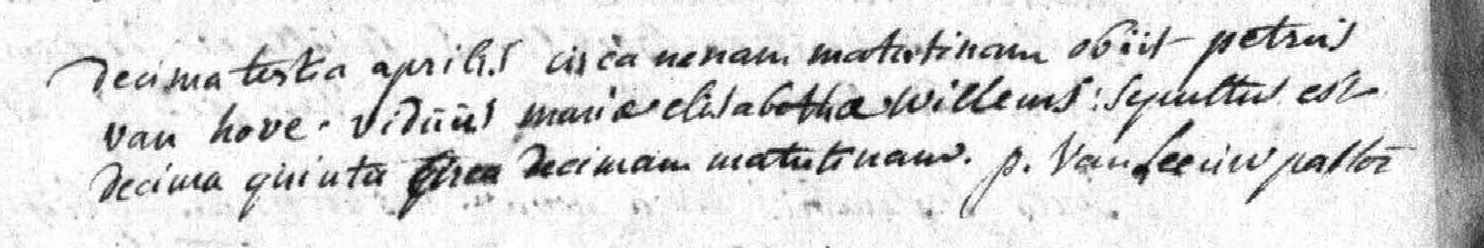 Decima tertia aprilis circa nonam matutinam obiit petrus
van hove. viduus mariæ elisabethæ Willems: sepultus est
decima quinta circa decimam matutinam. p. Van Leeuw pastor